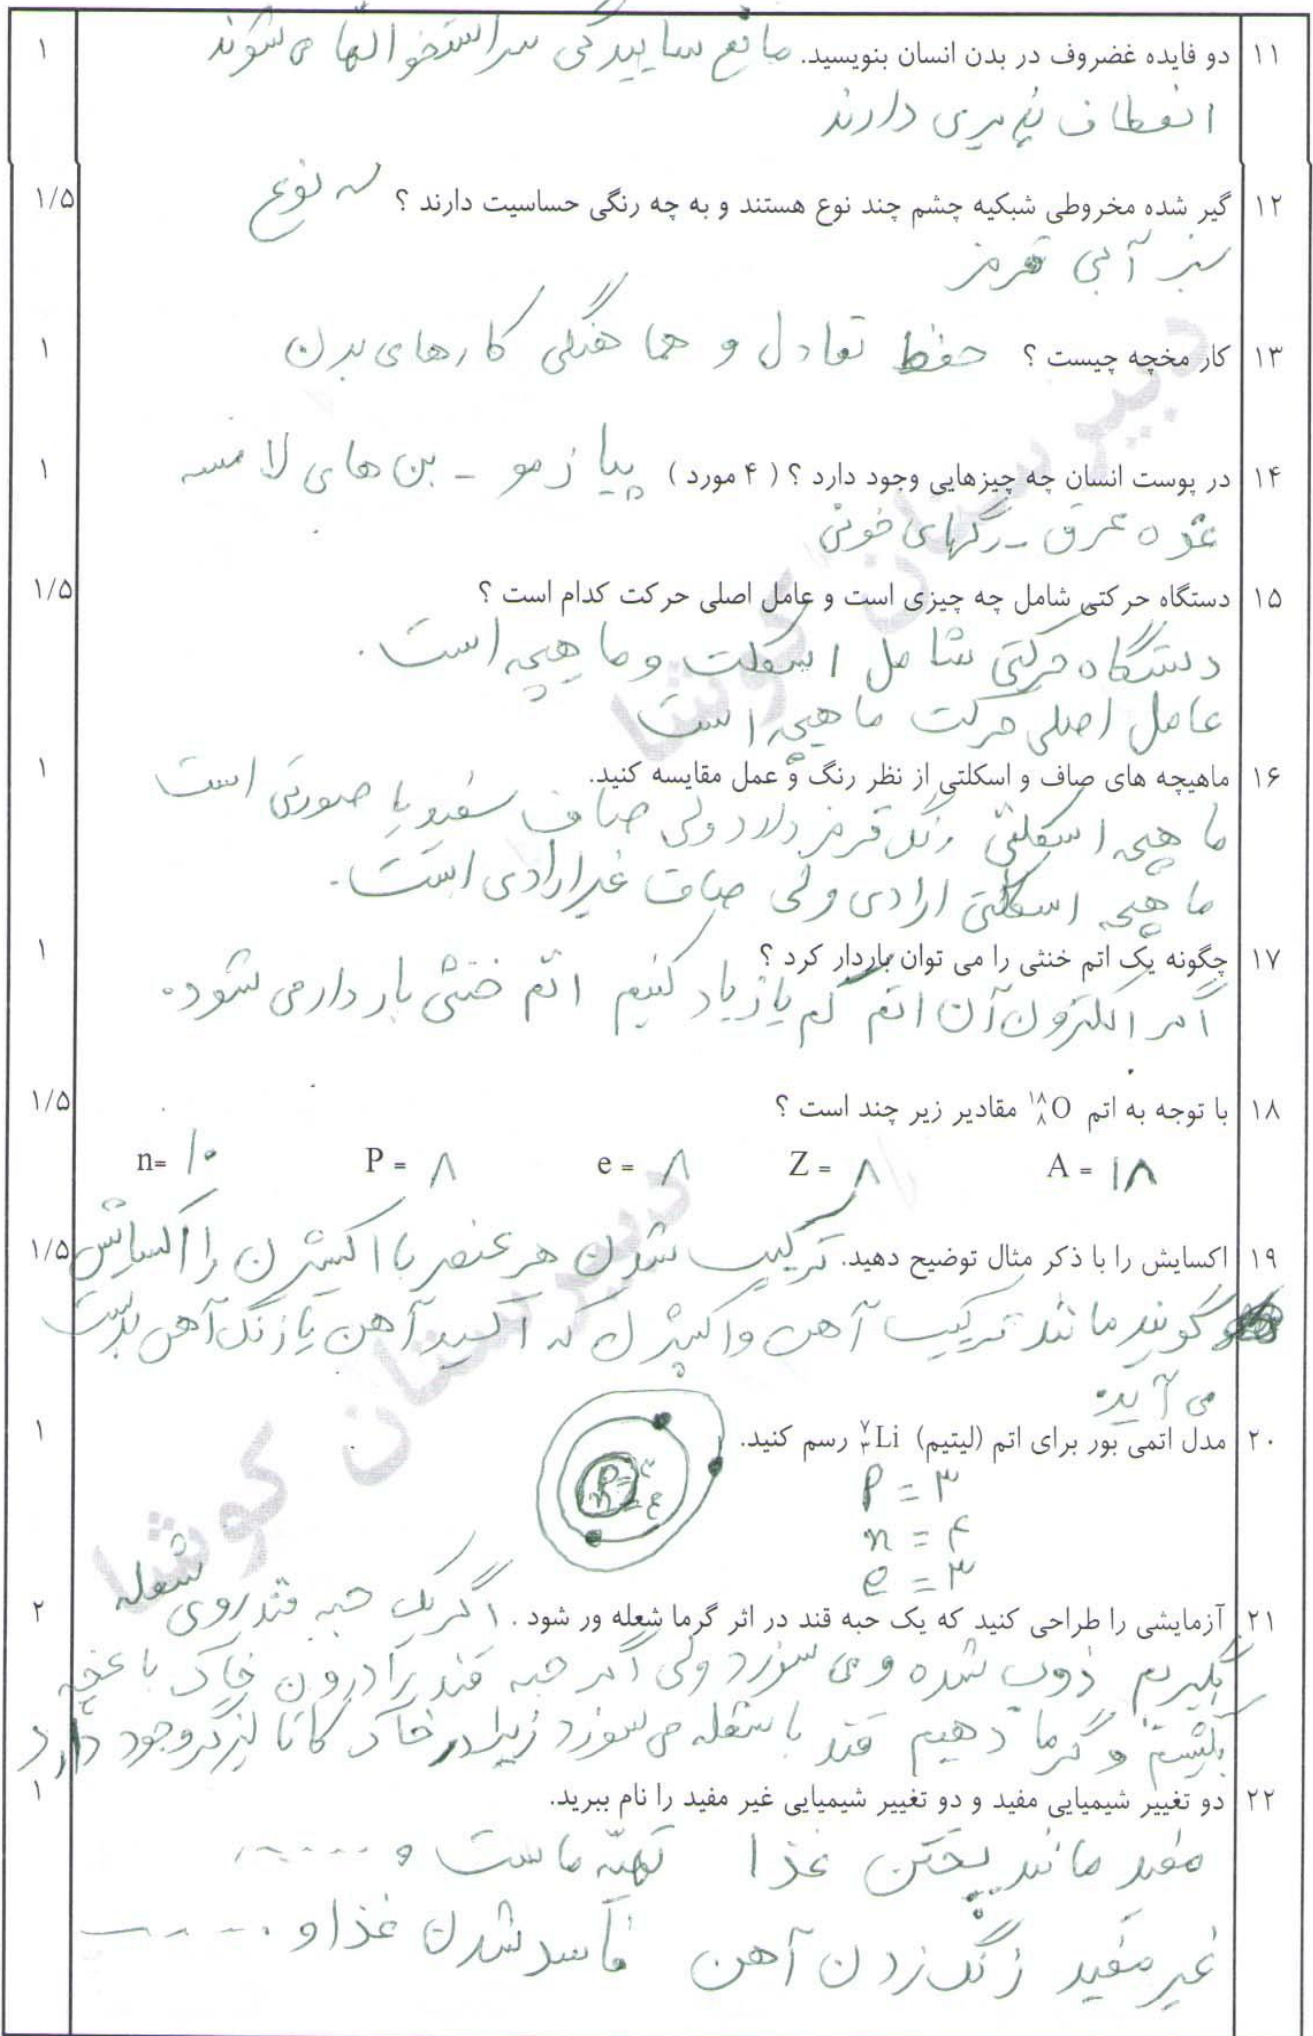 ۱۱ دو فایده غضروف در بدن انسان بنویسید. مانع ساییدگی سر استخوانها می شوند ۱
انعطاف پذیری دارند
۱۲ گیر شده مخروطی شبکیه چشم چند نوع هستند و به چه رنگی حساسیت دارند ؟ سه نوع ۱/۵
سبز آبی قرمز
۱۳ کار مخچه چیست ؟ حفظ تعادل و هماهنگی کارهای بدن ۱
۱۴ در پوست انسان چه چیزهایی وجود دارد ؟ ( ۴ مورد ) پیاز مو - بن های لامسه ۱
غده عرق - رگهای خونی
۱۵ دستگاه حرکتی شامل چه چیزی است و عامل اصلی حرکت کدام است ؟ ۱/۵
دستگاه حرکتی شامل اسکلت و ماهیچه است.
عامل اصلی حرکت ماهیچه است
۱۶ ماهیچه های صاف و اسکلتی از نظر رنگ و عمل مقایسه کنید. ۱
ماهیچه اسکلتی رنگ قرمز دارد ولی صاف سفید یا صورتی است
ماهیچه اسکلتی ارادی ولی صاف غیرارادی است.
۱۷ چگونه یک اتم خنثی را می توان باردار کرد ؟ ۱
اگر الکترون آن اتم کم یا زیاد کنیم اتم خنثی باردار می شود.
۱۸ با توجه به اتم ¹⁸₈O مقادیر زیر چند است ؟ ۱/۵
A = ۱۸ Z = ۸ e = ۸ P = ۸ n= ۱۰
۱۹ اکسایش را با ذکر مثال توضیح دهید. ترکیب شدن هر عنصر با اکسیژن را اکسایش ۱/۵
گویند مانند ترکیب آهن و اکسیژن که اکسید آهن یا زنگ آهن بدست
می آید.
۲۰ مدل اتمی بور برای اتم (لیتیم) ⁷₃Li رسم کنید. ۱
P = ۳
n = ۴
e = ۳
P = ۳
n = ۴
۲۱ آزمایشی را طراحی کنید که یک حبه قند در اثر گرما شعله ور شود . اگر یک حبه قند روی شعله ۲
بگیریم ذوب شده و می سوزد ولی اگر حبه قند را درون خاک باغچه
و گرما دهیم قند با شعله می سوزد زیرا در خاک کاتالیزگر وجود دارد
۲۲ دو تغییر شیمیایی مفید و دو تغییر شیمیایی غیر مفید را نام ببرید. ۱
مفید مانند پختن غذا تهیه ماست و ......
غیر مفید زنگ زدن آهن فاسد شدن غذا و ......
دبیرستان کوشا
دبیرستان کوشا